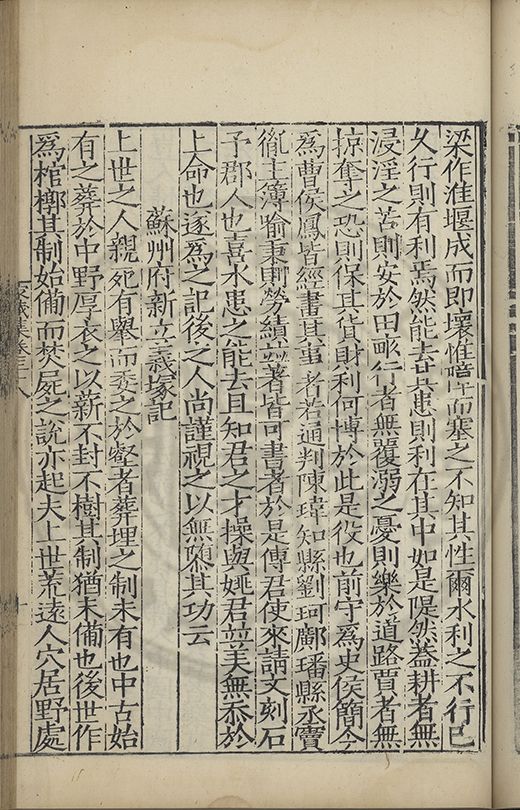 梁作淮堰成而即壞惟喑啞而塞之不知其性爾水利之不行已
久行則有利焉然能去其患則利在其中如是隄然蓋耕者無
浸淫之苦則安於田畝行者無覆溺之憂則樂於道路賈者無
掠奪之恐則保其貨財利何博於此是役也前守爲史侯簡今
爲曹侯鳳皆經書其事者若通判陳瑋知縣劉珂鄺璠縣丞賣
主簿喻秉則勞績並著皆可書者於是傅君使來請文刻石
予郡人也喜水患之能去且知君之才操與姚君並美無忝於
上命也遂爲之記後之人尚謹視之以無隳其功云
蘇州府新立義塚記
上世之人親死有舉而委之於壑者葬埋之制未有也中古始
有之葬於中野厚衣之以薪不封不樹其制猶未備也後世作
爲棺槨其制始備而焚屍之說亦起夫上世荒遠人穴居野處